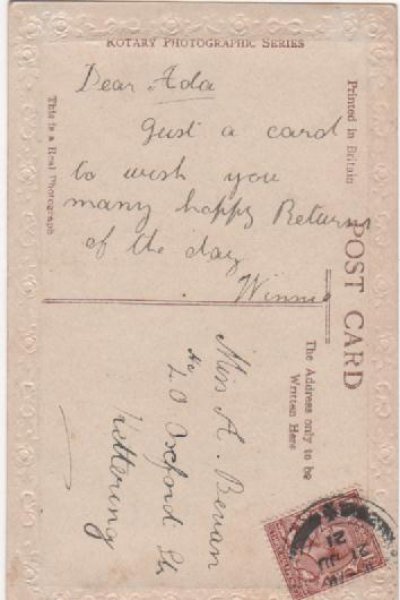 ROTARY PHOTOGRAPHIC SERIES
Dear Ada
Just a card
to wish you
many happy Returns
of the day
Winnie
This is a Real Photograph
Printed in Britain
POST CARD
The Address only to be
Written Here
Miss A. Bevan
40 Oxford St
Kettering
21 JU
21